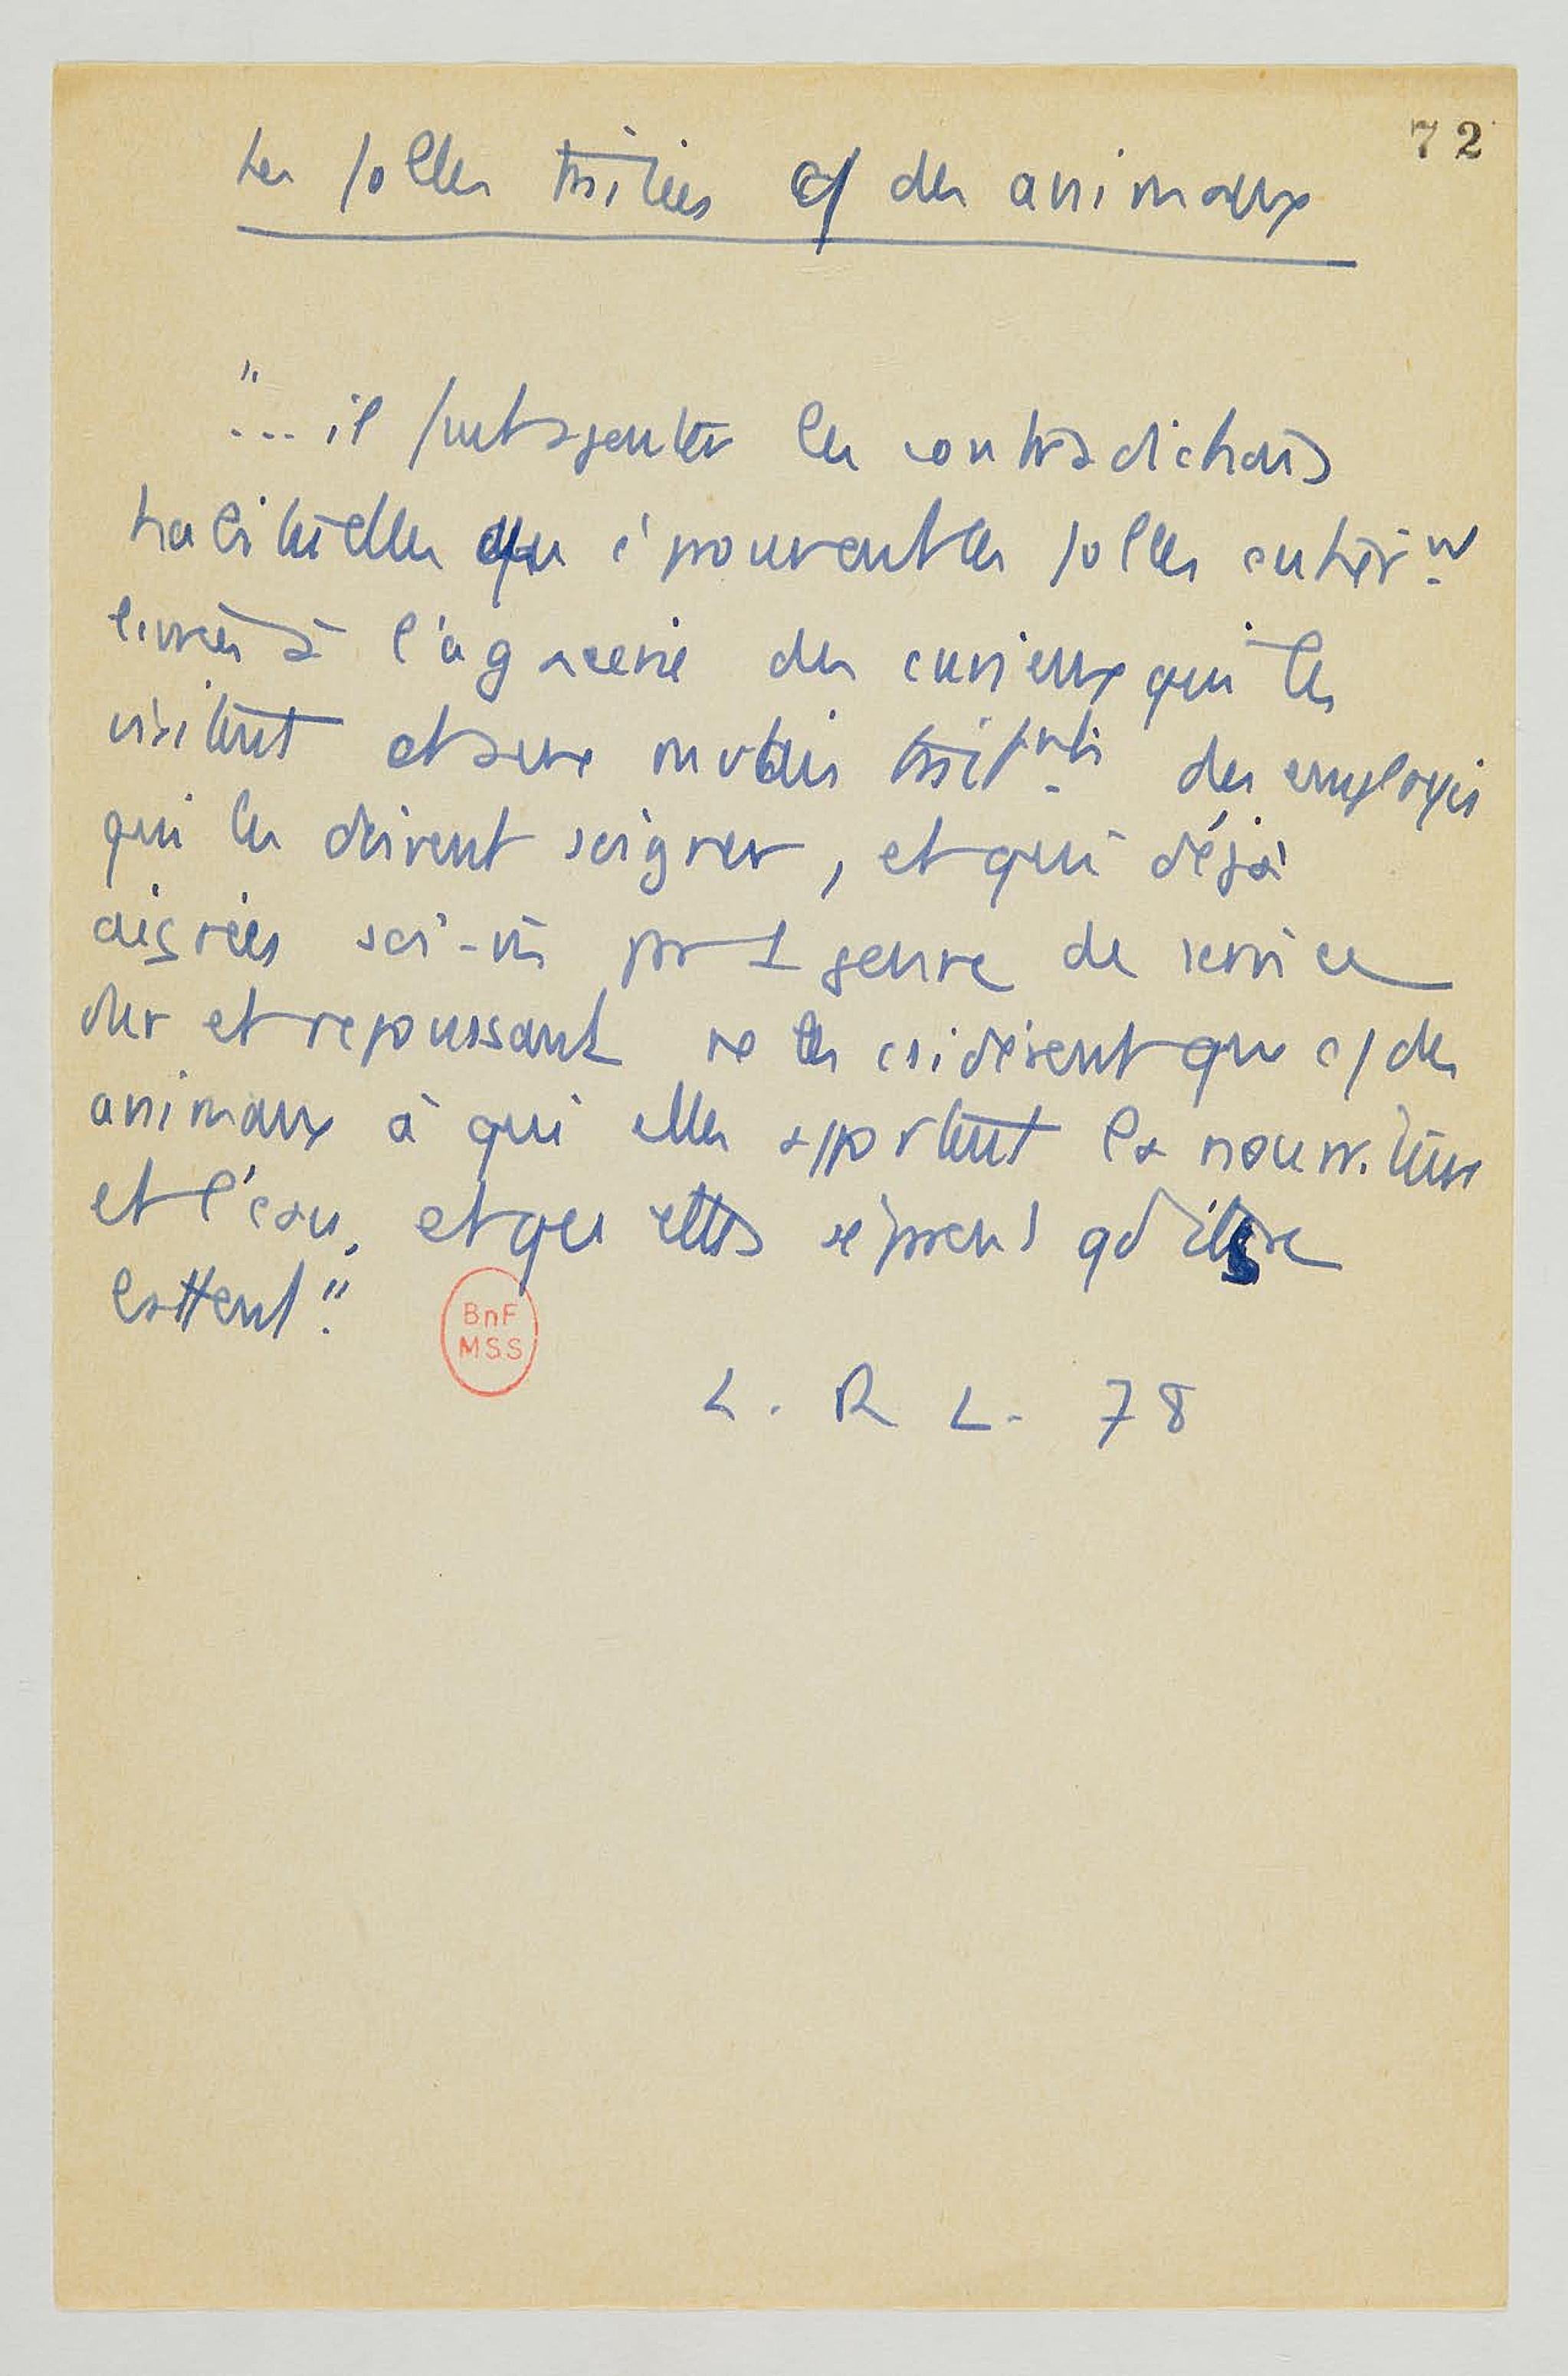 72
Les folles traitées c/ des animaux
"... il faut ajouter les contradictions
habituelles qu'éprouvent les folles entièrt
livrées à l'agacerie des curieux qui les
visitent et aux mvais traitmts des employés
qui les doivent soigner, et qui déjà
aigries par 1 genre de service
dur et repoussant ne les csidèrent que c/ des
animaux à qui elles apportent la nourriture
et l'eau, et qu'elles qd ils se
lattent."
BnF
MSS
L. R L. 78